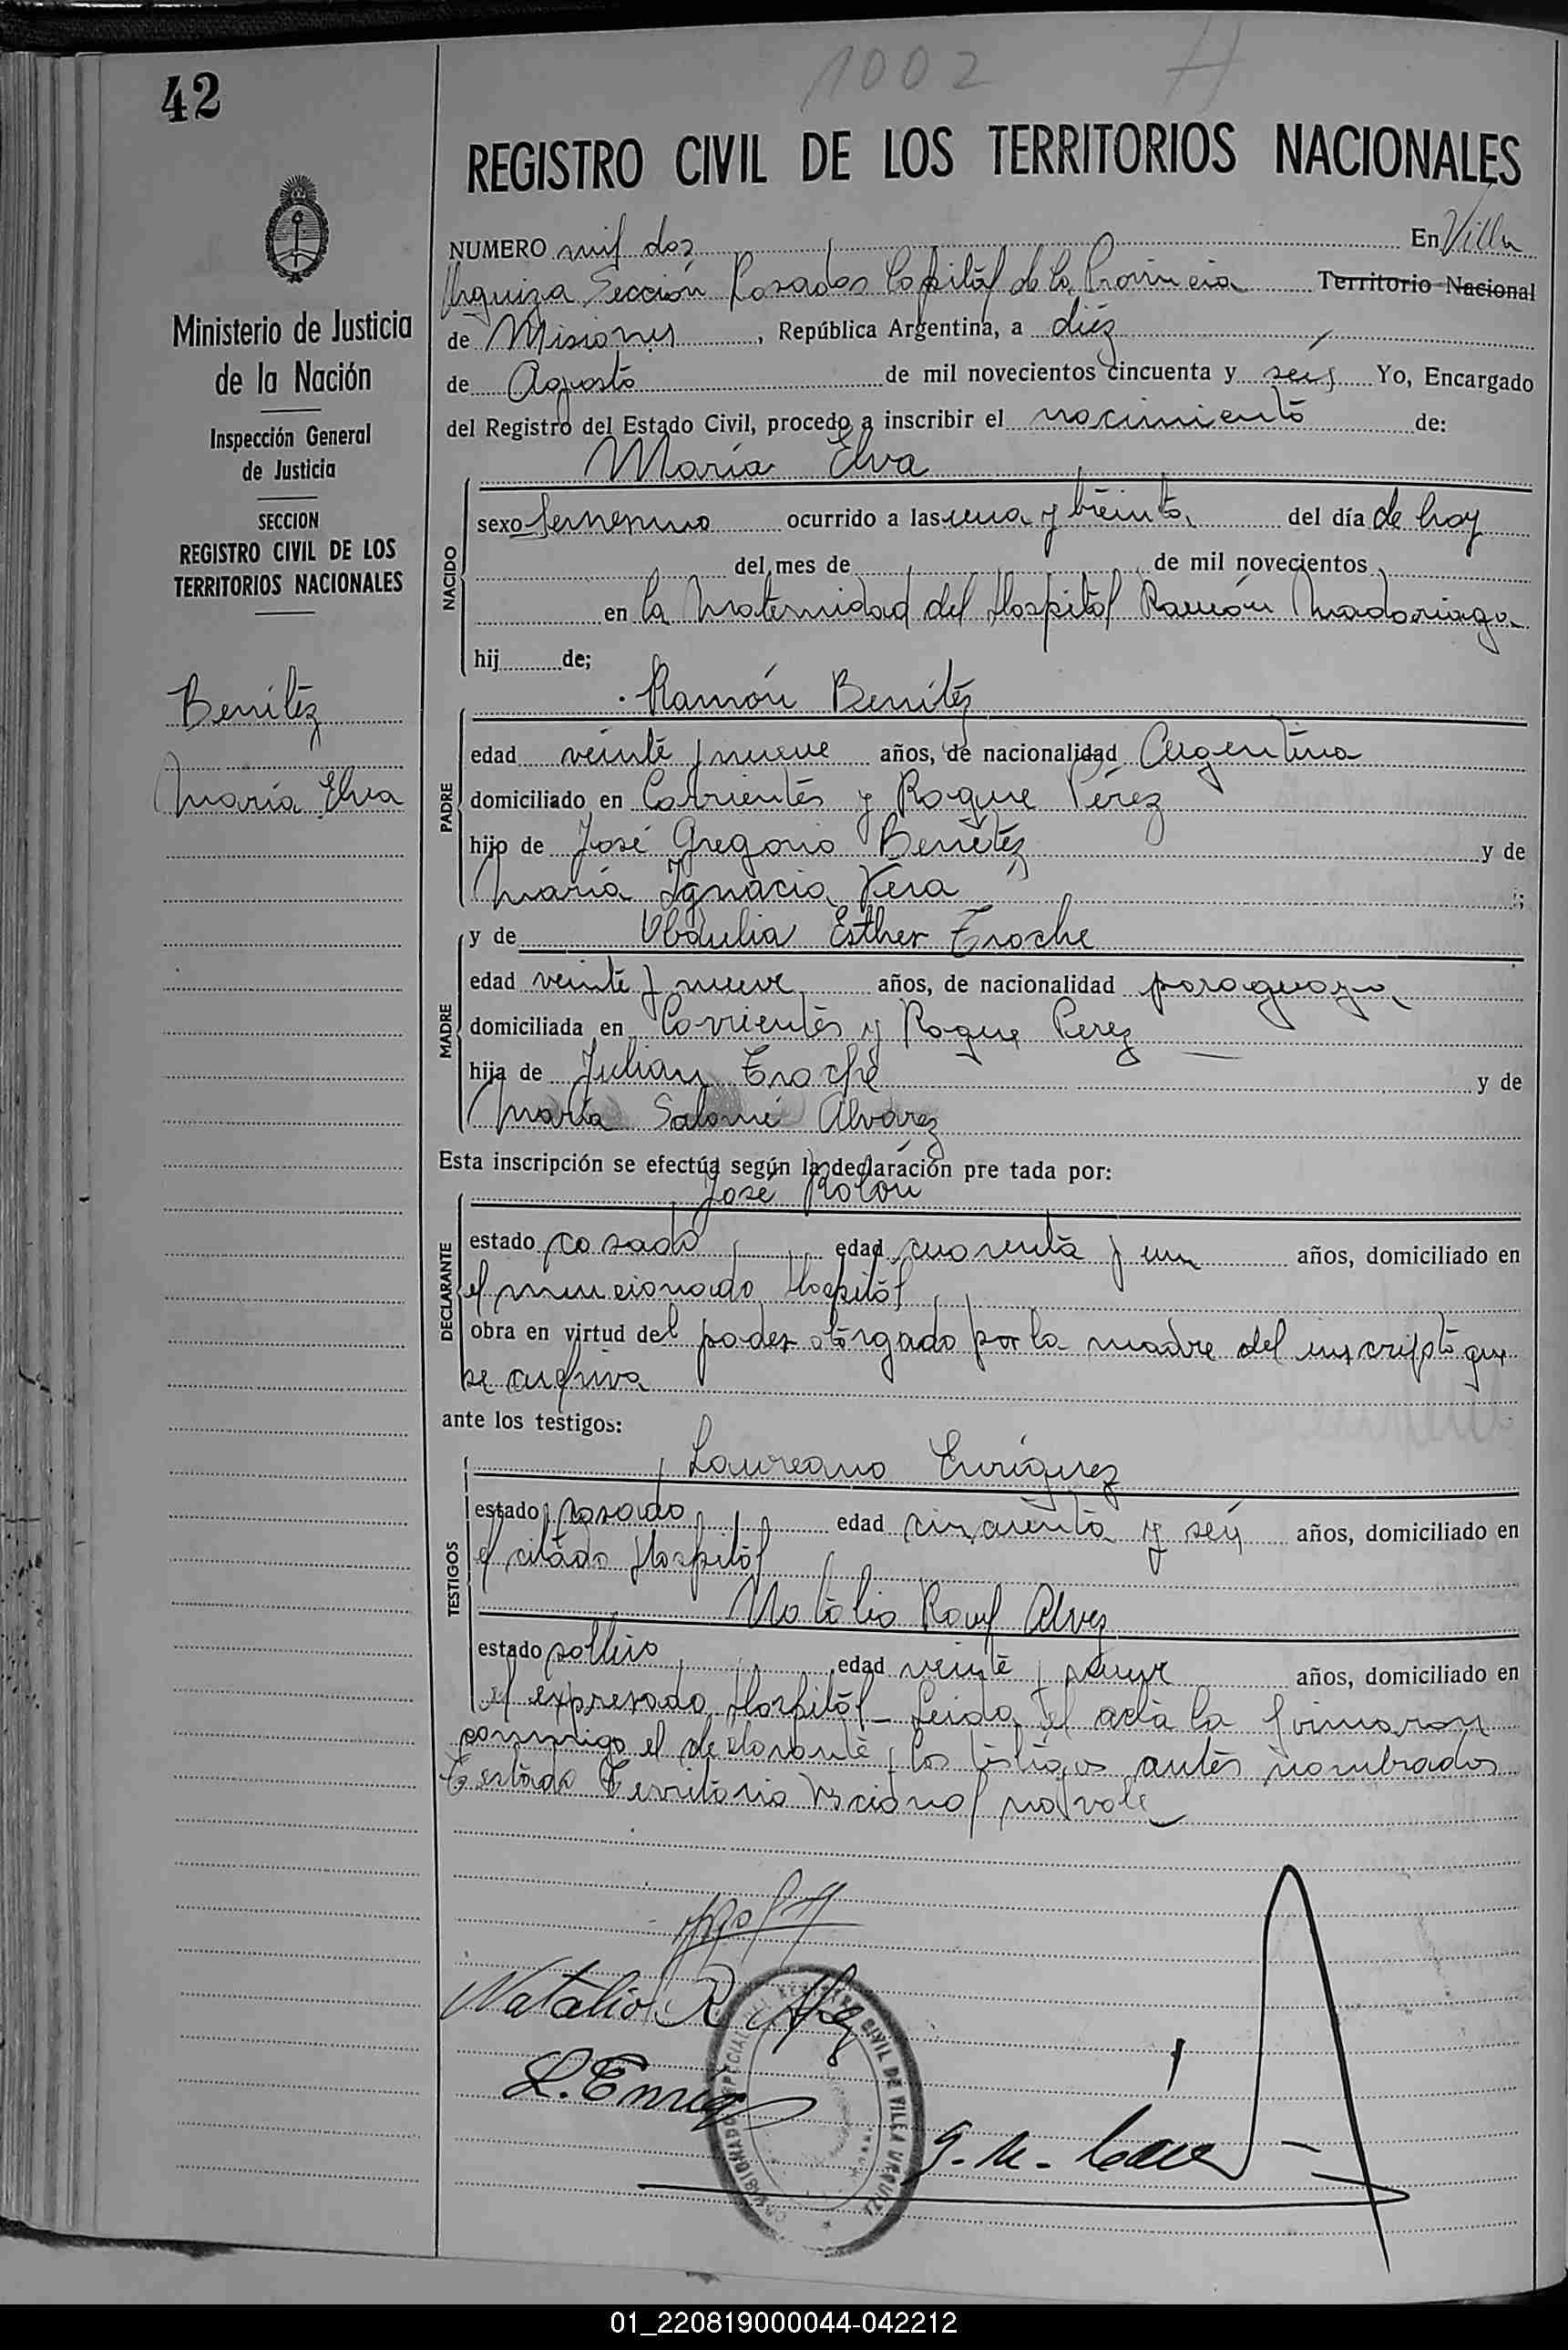 1002 H
42
REGISTRO CIVIL DE LOS TERRITORIOS NACIONALES
NUMERO mil dos En Villa
Urquiza Sección Posadas Capital de la Provincia Territorio Nacional
de Misiones, República Argentina, a diéz
de Agosto de mil novecientos cincuenta y seis Yo, Encargado
del Registro del Estado Civil, procedo a inscribir el nacimiento de:
María Elva
Ministerio de Justicia
de la Nación
Inspección General
de Justicia
SECCION
REGISTRO CIVIL DE LOS
TERRITORIOS NACIONALES
Benítez
María Elva
NACIDO
sexo femenino ocurrido a las una y treinta del día de hoy
del mes de de mil novecientos
en la Maternidad del Hospital Ramón Madariaga
hij de;
Ramón Benítez
PADRE
edad veinte y nueve años, de nacionalidad Argentina
domiciliado en Corrientes y Roque Pérez
hijo de José Gregorio Benítez y de
María Ignacia Vera ;
y de Obdulia Esther Troche
MADRE
edad veinte y nueve años, de nacionalidad paraguaya
domiciliada en Corrientes y Roque Perez
hija de Julian Troche y de
María Salomé Alvarez
Esta inscripción se efectúa según la declaración pre tada por:
José Rolón
DECLARANTE
estado casado edad cuarenta y un años, domiciliado en
el mencionado Hospital
obra en virtud del poder otorgado por la madre del inscripto que
se archiva
ante los testigos:
Laureano Enriquez
TESTIGOS
estado casado edad cincuenta y seis años, domiciliado en
el citado Hospital
Natalio Raul Alvez
estado soltero edad veinte y nueve años, domiciliado en
el expresado Hospital_ Leida el acta la firmaron
conmigo el declarante y los testigos antes nombrados
Testado Territorio Nacional no vale
Natalio R Alvez
L. Enriq
REGISTRO CIVIL DE VILLA URQUIZA
01_220819000044-042212